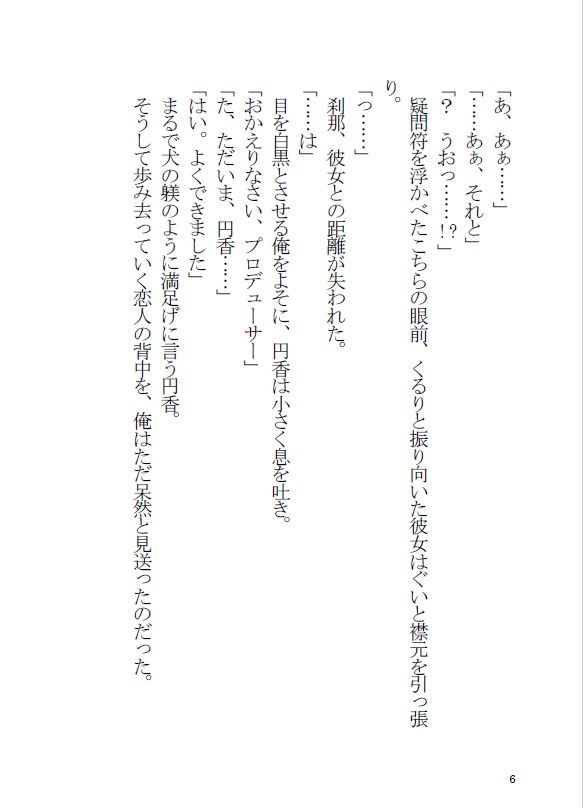 「あ、あぁ……」
「……あぁ、それと」
「？　うおっ……!?」
　疑問符を浮かべたこちらの眼前、くるりと振り向いた彼女はぐいと襟元を引っ張
り。
「っ……」
　刹那、彼女との距離が失われた。
「……は」
　目を白黒とさせる俺をよそに、円香は小さく息を吐き。
「おかえりなさい、プロデューサー」
「た、ただいま、円香……」
「はい。よくできました」
　まるで犬の躾のように満足げに言う円香。
　そうして歩み去っていく恋人の背中を、俺はただ呆然と見送ったのだった。
6